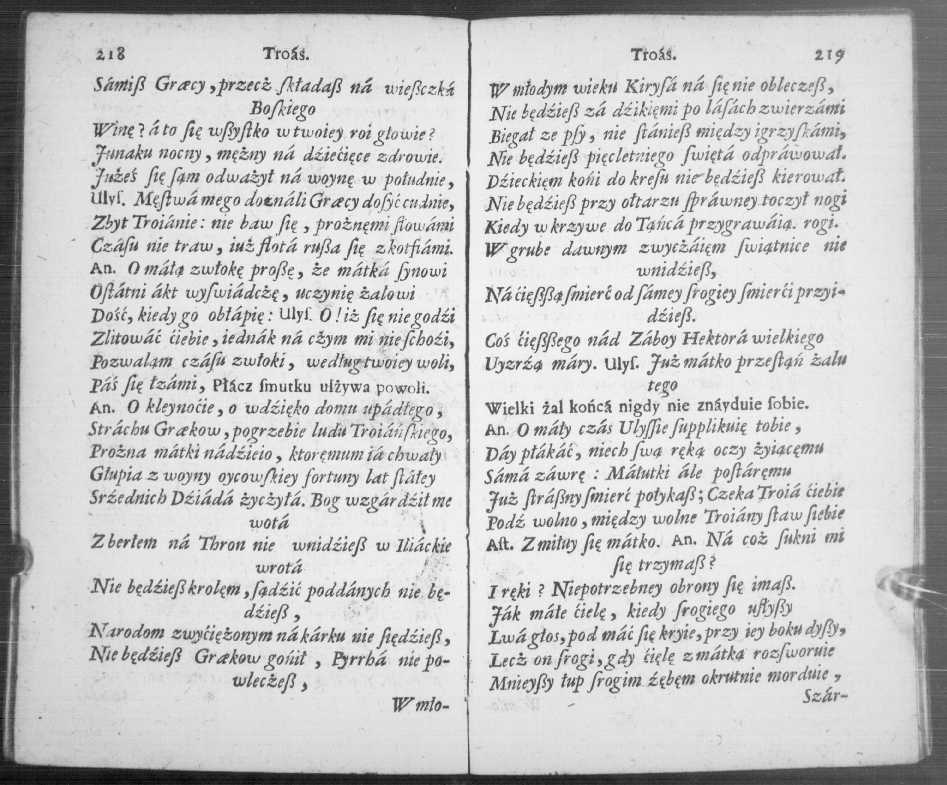 218 Troás.
Sámiß Græcy, przecż składaß ná wießczká
Boſkiego
Winę? á to ſię wßyſtko w twoiey roi głowie?
Junaku nocny, mężny ná dźiećięce zdrowie.
Jużeś ſię ſąm odważył ná woynę w południe,
Ulyſ. Męſtwá mego doználi Græcy dosyć cudnie,
Zbyt Troiánie: nie baw ſię, prożnęmi ſłowámi
Czáſu nie traw, iuż flotá rußa ſię z kotfiámi.
An. O máłą zwłokę proßę, że mátká ſynowi
Oſtátni ákt wyſwiádcżę, uczynię żalowi
Dość, kiedy go obłápię: Ulyſ. O! iż ſię nie godźi
Zlitowáć ćiebie, iednák ná cżym mi nie ſchoźi,
Pozwaląm czáſu zwłoki, według twoiey woli,
Páś ſię łzámi, Płácz ſmutku ulżywa powoli.
An. O kleynoćie, o wdźięko domu upádłego,
Stráchu Grækow, pogrzebie ludu Troiáńſkiego,
Prożna mátki nádźieio, ktoręmum iá chwały
Głupia z woyny oycowſkiey fortuny lat ſtáłey
Srźednich Dźiádá życżyłá. Bog wzgárdźił me
wotá
Z berłem ná Thron nie wnidźieß w Iliáckie
wrotá
Nie będźieß krolęm, ſądźić poddánych nie bę-
dźieß,
Narodom zwyćiężonym ná kárku nie ſiędźieß,
Nie będźieß Grækow gońił, Pyrrhá nie po-
wlecżeß,
W mło-
Troás. 219
W młodym wieku Kiryſá ná ſię nie obleczeß,
Nie będźieß zá dźikięmi po láſách zwierzámi
Biegał ze pſy, nie ſtánieß między igrzyſkámi,
Nie będźieß pięcletniego ſwiętá odpráwował.
Dźieckięm końi do kreſu nie będźieß kierował.
Nie będźieß przy ołtarzu ſpráwney toczył nogi
Kiedy w krzywe do Táńcá przygrawáią. rogi.
W grube dawnym zwyczáięm ſwiątnice nie
wnidźieß,
Ná ćięßßą ſmierć od ſámey ſrogiey ſmierći przyi-
dźieß.
Coś ćięßßego nád Záboy Hektorá wielkiego
Uyzrźą máry. Ulyſ. Już mátko przeſtąń żalu
tego
Wielki żal końcá nigdy nie znáyduie ſobie.
An. O máły czás Ulyſſie ſupplikuię tobie,
Dáy płákáć, niech ſwą ręką oczy żyiącęmu
Sámá záwrę: Máłutki ále poſtáręmu
Już ſtráßny ſmierć połykaß; Czeka Troiá ćiebie
Podź wolno, między wolne Troiány ſtaw ſiebie
Aſt. Zmiłuy ſię mátko. An. Ná coż ſukni mi
ſię trzymaß?
I ręki? Niepotrzebney obrony ſię imaß.
Ják máłe ćielę, kiedy ſrogiego uſłyßy
Lwá głos, pod máć ſię kryie, przy iey boku dyßy,
Lecż on ſrogi, gdy ćielę z mátką rozſworuie
Mnieyßy łup ſrogim źębęm okrutnie morduie,
Szár-